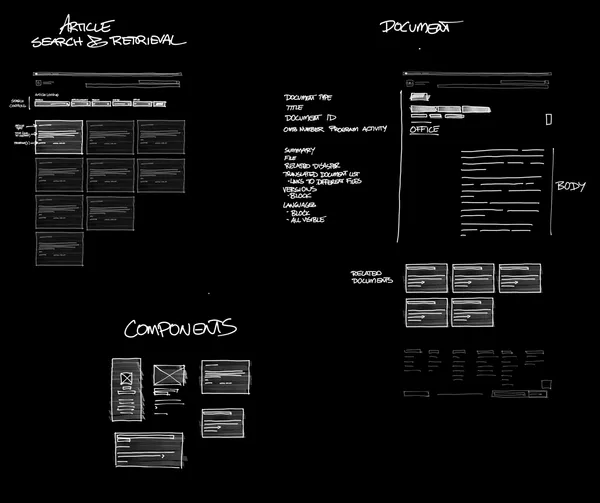 ARTICLE
SEARCH & RETRIEVAL
SEARCH
CONTROLS
DOCUMENT
DOCUMENT TYPE
TITLE
DOCUMENT ID
OMB NUMBER PROGRAM ACTIVITY
SUMMARY
FILE
RELATED DISASTER
TRANSLATED DOCUMENT LIST
• LINKS TO DIFFERENT FILES
VERSIONS
• BLOCK
LANGUAGES
• BLOCK
- ALL VISIBLE
OFFICE
BODY
RELATED
DOCUMENTS
COMPONENTS